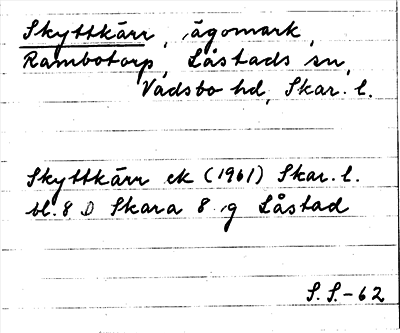 Skyttkärr, ägomark,
Rambotorp, Låstads sn,
Vadsbo hd, Skar. l.
Skyttkärr ek (1961) Skar. l.
bl. 8 D Skara 8 g Låstad
S. S.-62